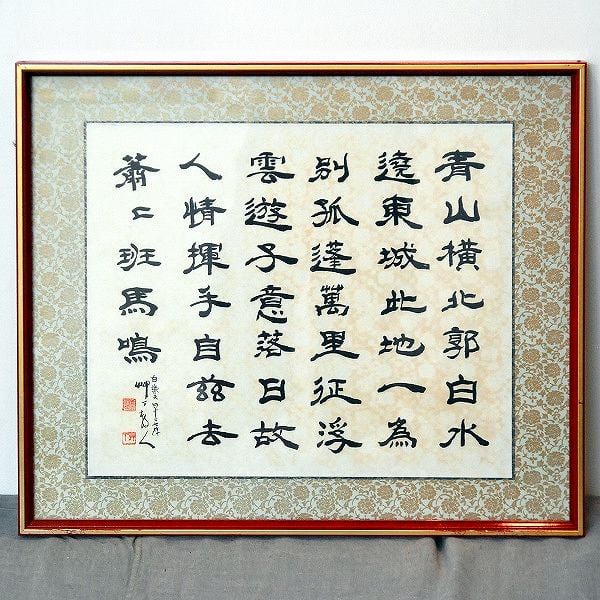 青山橫北郭白水
遶東城此地一為
別孤蓬萬里征浮
雲遊子意落日故
人情揮手自茲去
蕭〻班馬鳴